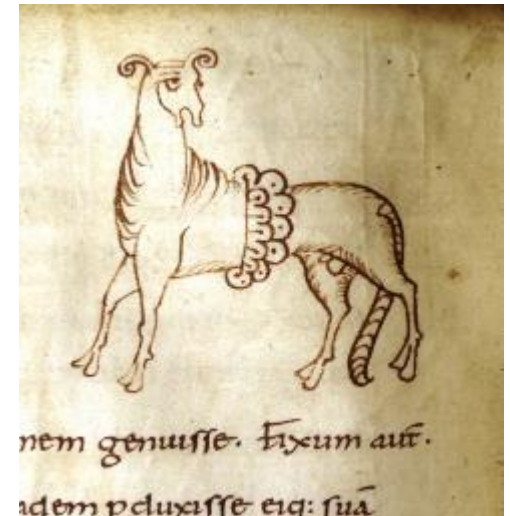 nem genuisse. Fixum aut̄.
adem pduxisse eiq: suā